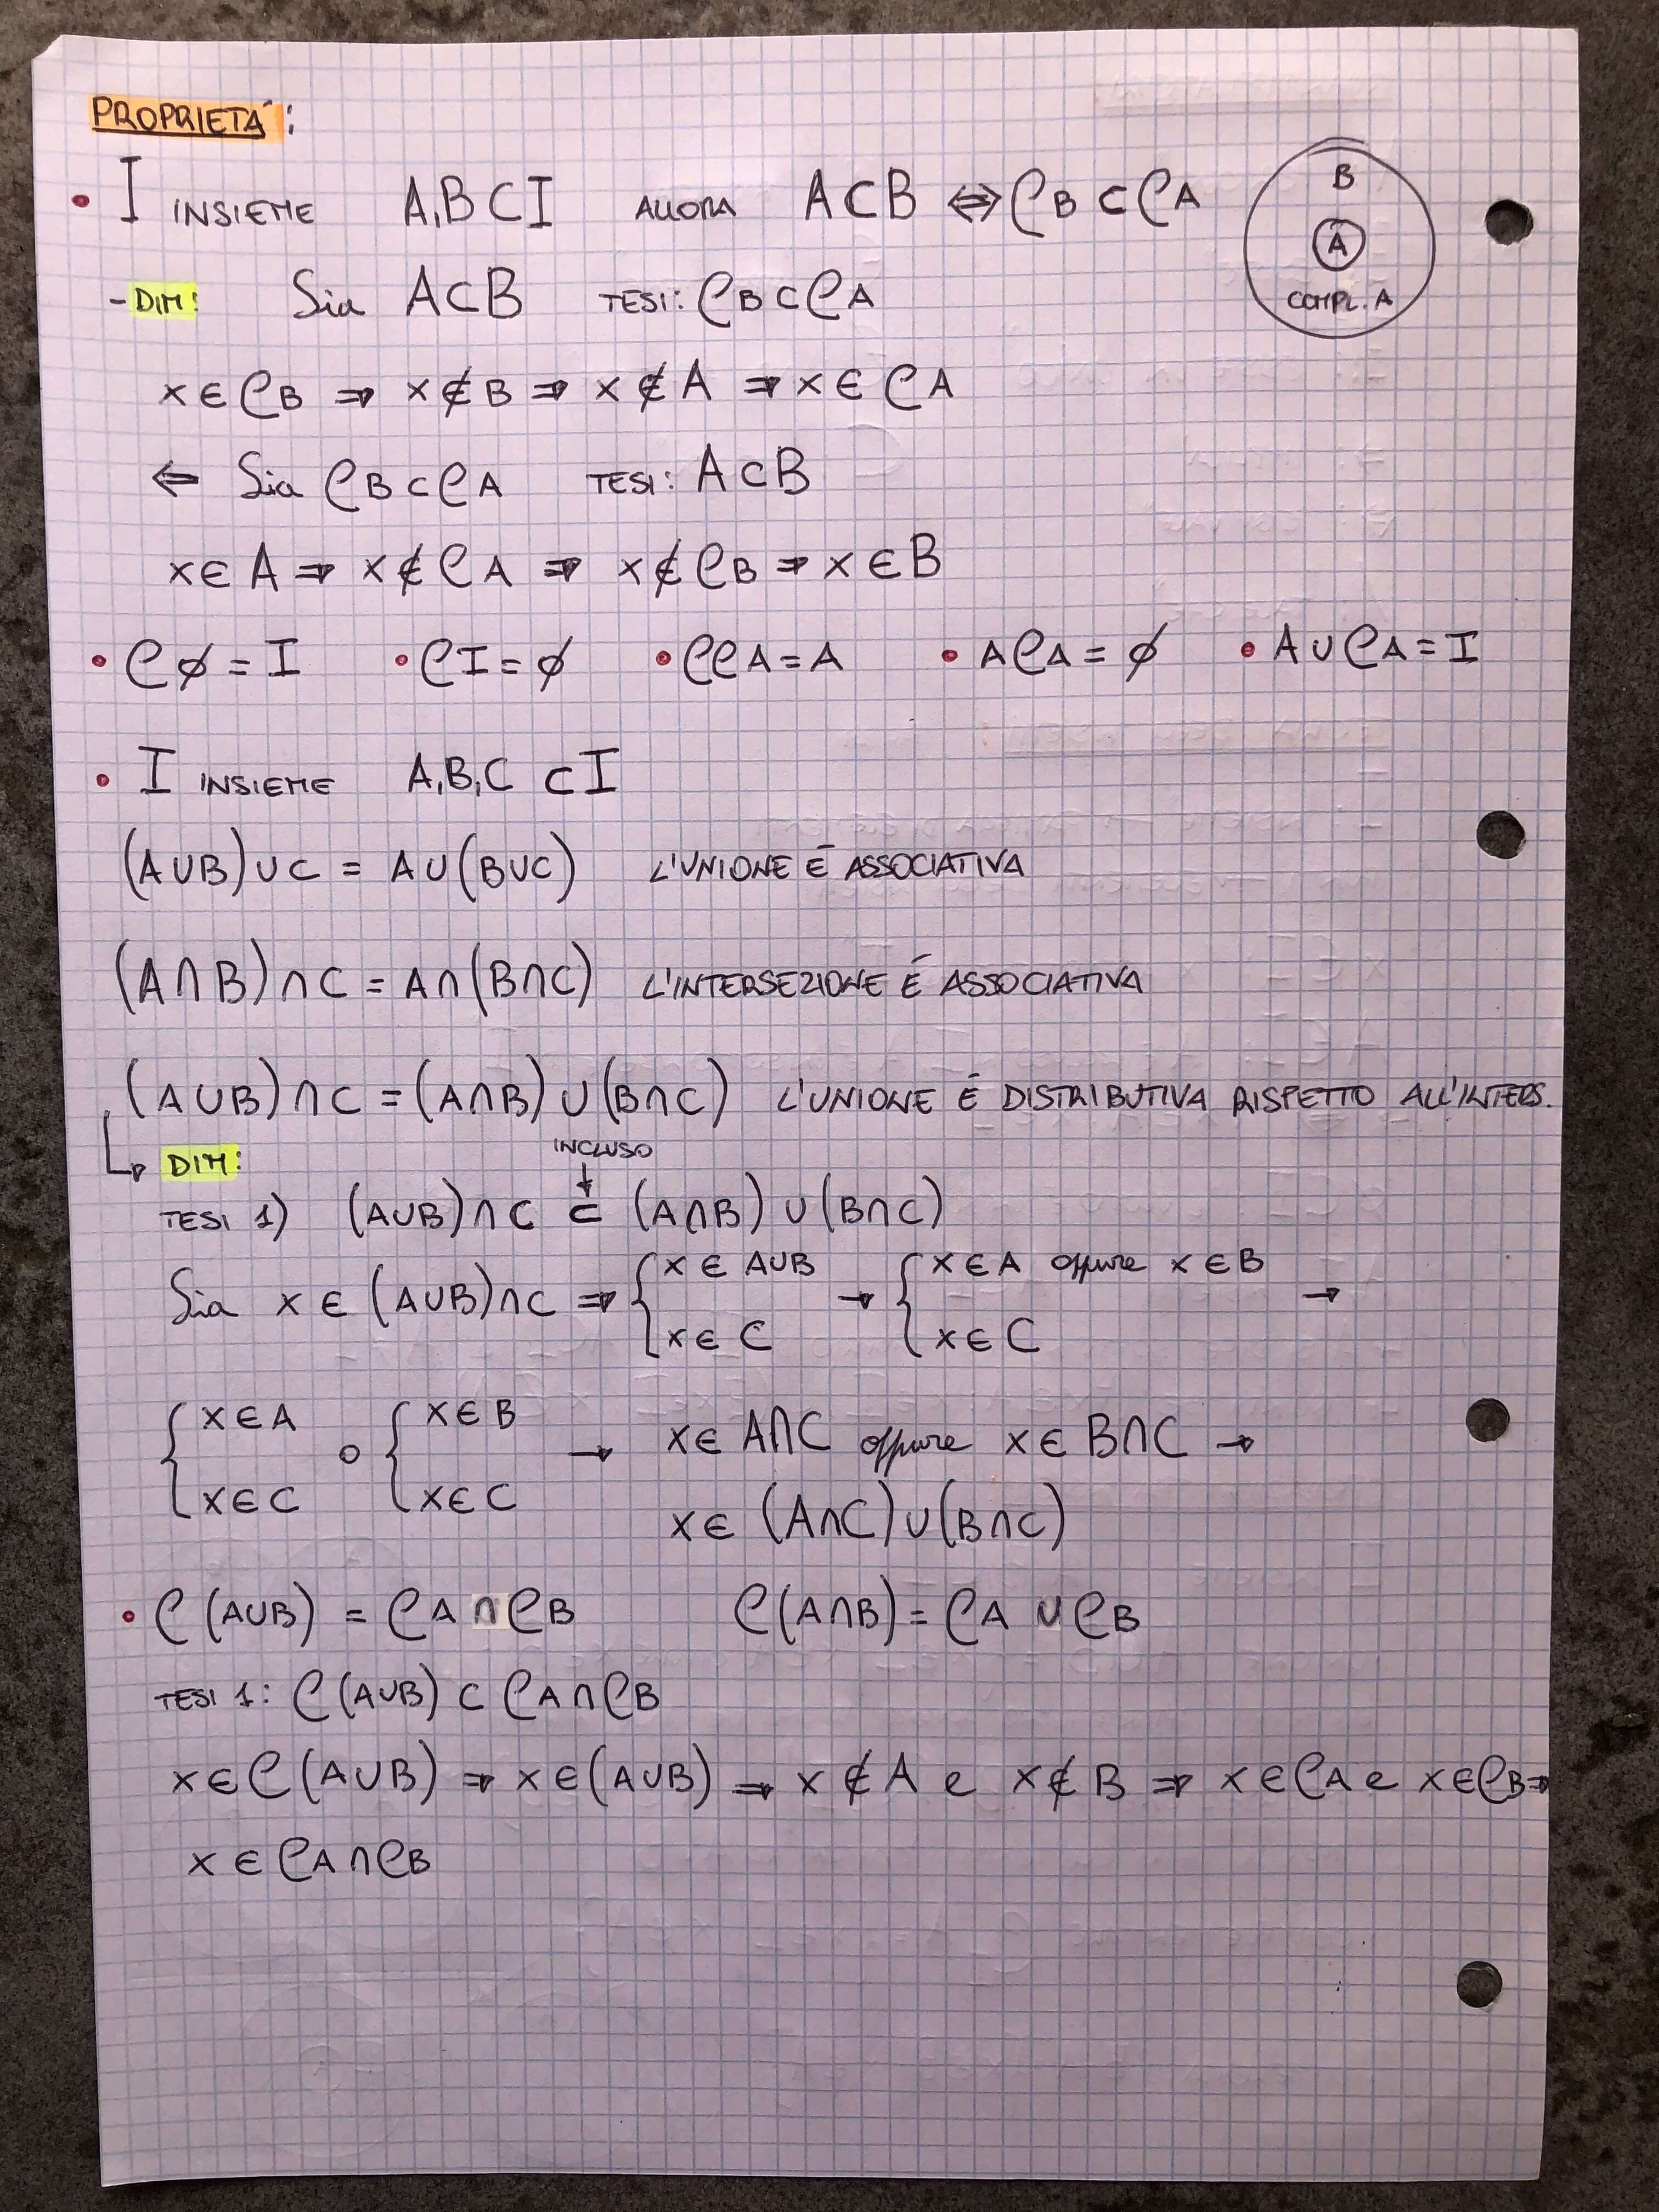 PROPRIETÁ:
• I INSIEME A,B⊂I ALLORA A⊂B ⇔ ∁B ⊂ ∁A
B
A
COMPL. A
- DIM: Sia A⊂B TESI: ∁B⊂∁A
x∈∁B ⇒ x∉B ⇒ x∉A ⇒ x∈∁A
⇐ Sia ∁B⊂∁A TESI: A⊂B
x∈A ⇒ x∉∁A ⇒ x∉∁B ⇒ x∈B
• ∁∅=I • ∁I=∅ • ∁∁A=A • A∁A=∅ • A∪∁A=I
• I INSIEME A,B,C ⊂I
(A∪B)∪C = A∪(B∪C) L'UNIONE É ASSOCIATIVA
(A∩B)∩C = A∩(B∩C) L'INTERSEZIONE É ASSOCIATIVA
(A∪B)∩C = (A∩B)∪(B∩C) L'UNIONE É DISTRIBUTIVA RISPETTO ALL'INTERS.
↳ DIM:
INCLUSO
↓
TESI 1) (A∪B)∩C ⊂ (A∩B)∪(B∩C)
Sia x∈(A∪B)∩C ⇒ { x∈A∪B → { x∈A oppure x∈B →
x∈C x∈C
{ x∈A o { x∈B → x∈A∩C oppure x∈B∩C →
x∈C x∈C x∈(A∩C)∪(B∩C)
• ∁(A∪B) = ∁A∩∁B ∁(A∩B) = ∁A∪∁B
TESI 1: ∁(A∪B) ⊂ ∁A∩∁B
x∈∁(A∪B) ⇒ x∈(A∪B) ⇒ x∉A e x∉B ⇒ x∈∁A e x∈∁B ⇒
x∈∁A∩∁B